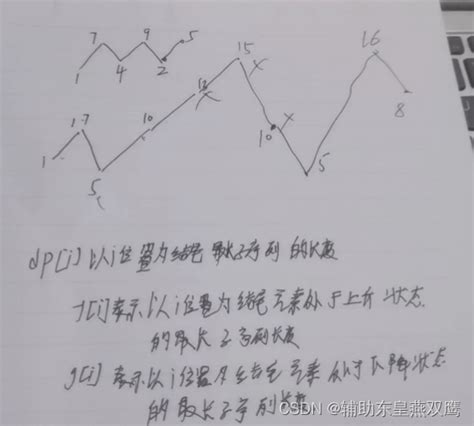 7 9 5
1 4 2
15 16
1 17 10 13 10 8
5 5
dp[i] 以i位置为结尾 最长子序列 的长度
f[i]表示 以i位置为结尾 元素处于上升 状态
的最长子序列长度
g[i] 表示以i位置为结尾 元素处于下降状态
的最长子序列长度
CSDN @辅助东皇燕双鹰